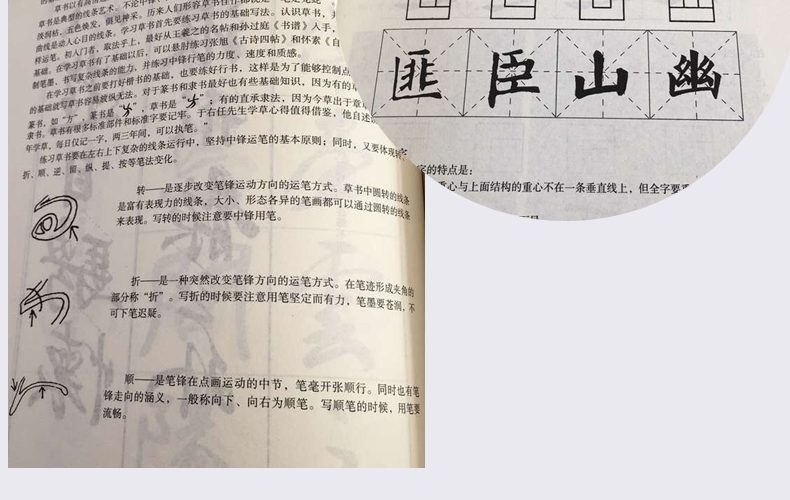 草书是典型的线条艺术。不论中锋
淡润枯，五色焕发，偶见神采。历来人们形容草书佳作都说是
曲线是动人心目的线条。学习草书首先要练习草书的基础写法。认识草书，并
基础。在学习草书有了基础以后，可以悬肘练习张旭《古诗四帖》和怀素《自
样运笔。初入门者，取法乎上，最好从王羲之的名帖和孙过庭《书谱》入手，
制笔墨、书写复杂线条的能力，并练习中锋行笔的力度、速度和质感。
在学习草书之前要打好楷书的基础，也要练好行书，这是为了能够控制点
的基础就写草书容易放纵无法。对于篆书和隶书最好也有些基础知识，因为有的草
篆书，如“方”，篆书是“”，草书是“”；有的直承隶法，因为今草出于章
隶书。草书有很多标准部件和标准字要记牢。于右任先生学草心得值得借鉴，他自述
年学草，每日仅记一字，两三年间，可以执笔。”
练习草书要在左右上下复杂的线条运行中，坚持中锋运笔的基本原则；同时，又要体现转
折、顺、逆、留、纵、提、按等笔法变化。
转——是逐步改变笔锋运动方向的运笔方式。草书中圆转的线条
是富有表现力的线条，大小、形态各异的笔画都可以通过圆转的线条
来表现。写转的时候注意要中锋用笔。
折——是一种突然改变笔锋方向的运笔方式。在笔迹形成夹角的
部分称“折”。写折的时候要注意用笔坚定而有力，笔墨要苍润，不
可下笔迟疑。
顺——是笔锋在点画运动的中节，笔毫开张顺行。同时也有笔
锋走向的涵义，一般称向下、向右为顺笔。写顺笔的时候，用笔要
流畅。
匪臣山幽
字的特点是：
重心与上面结构的重心不在一条垂直线上，但全字要重